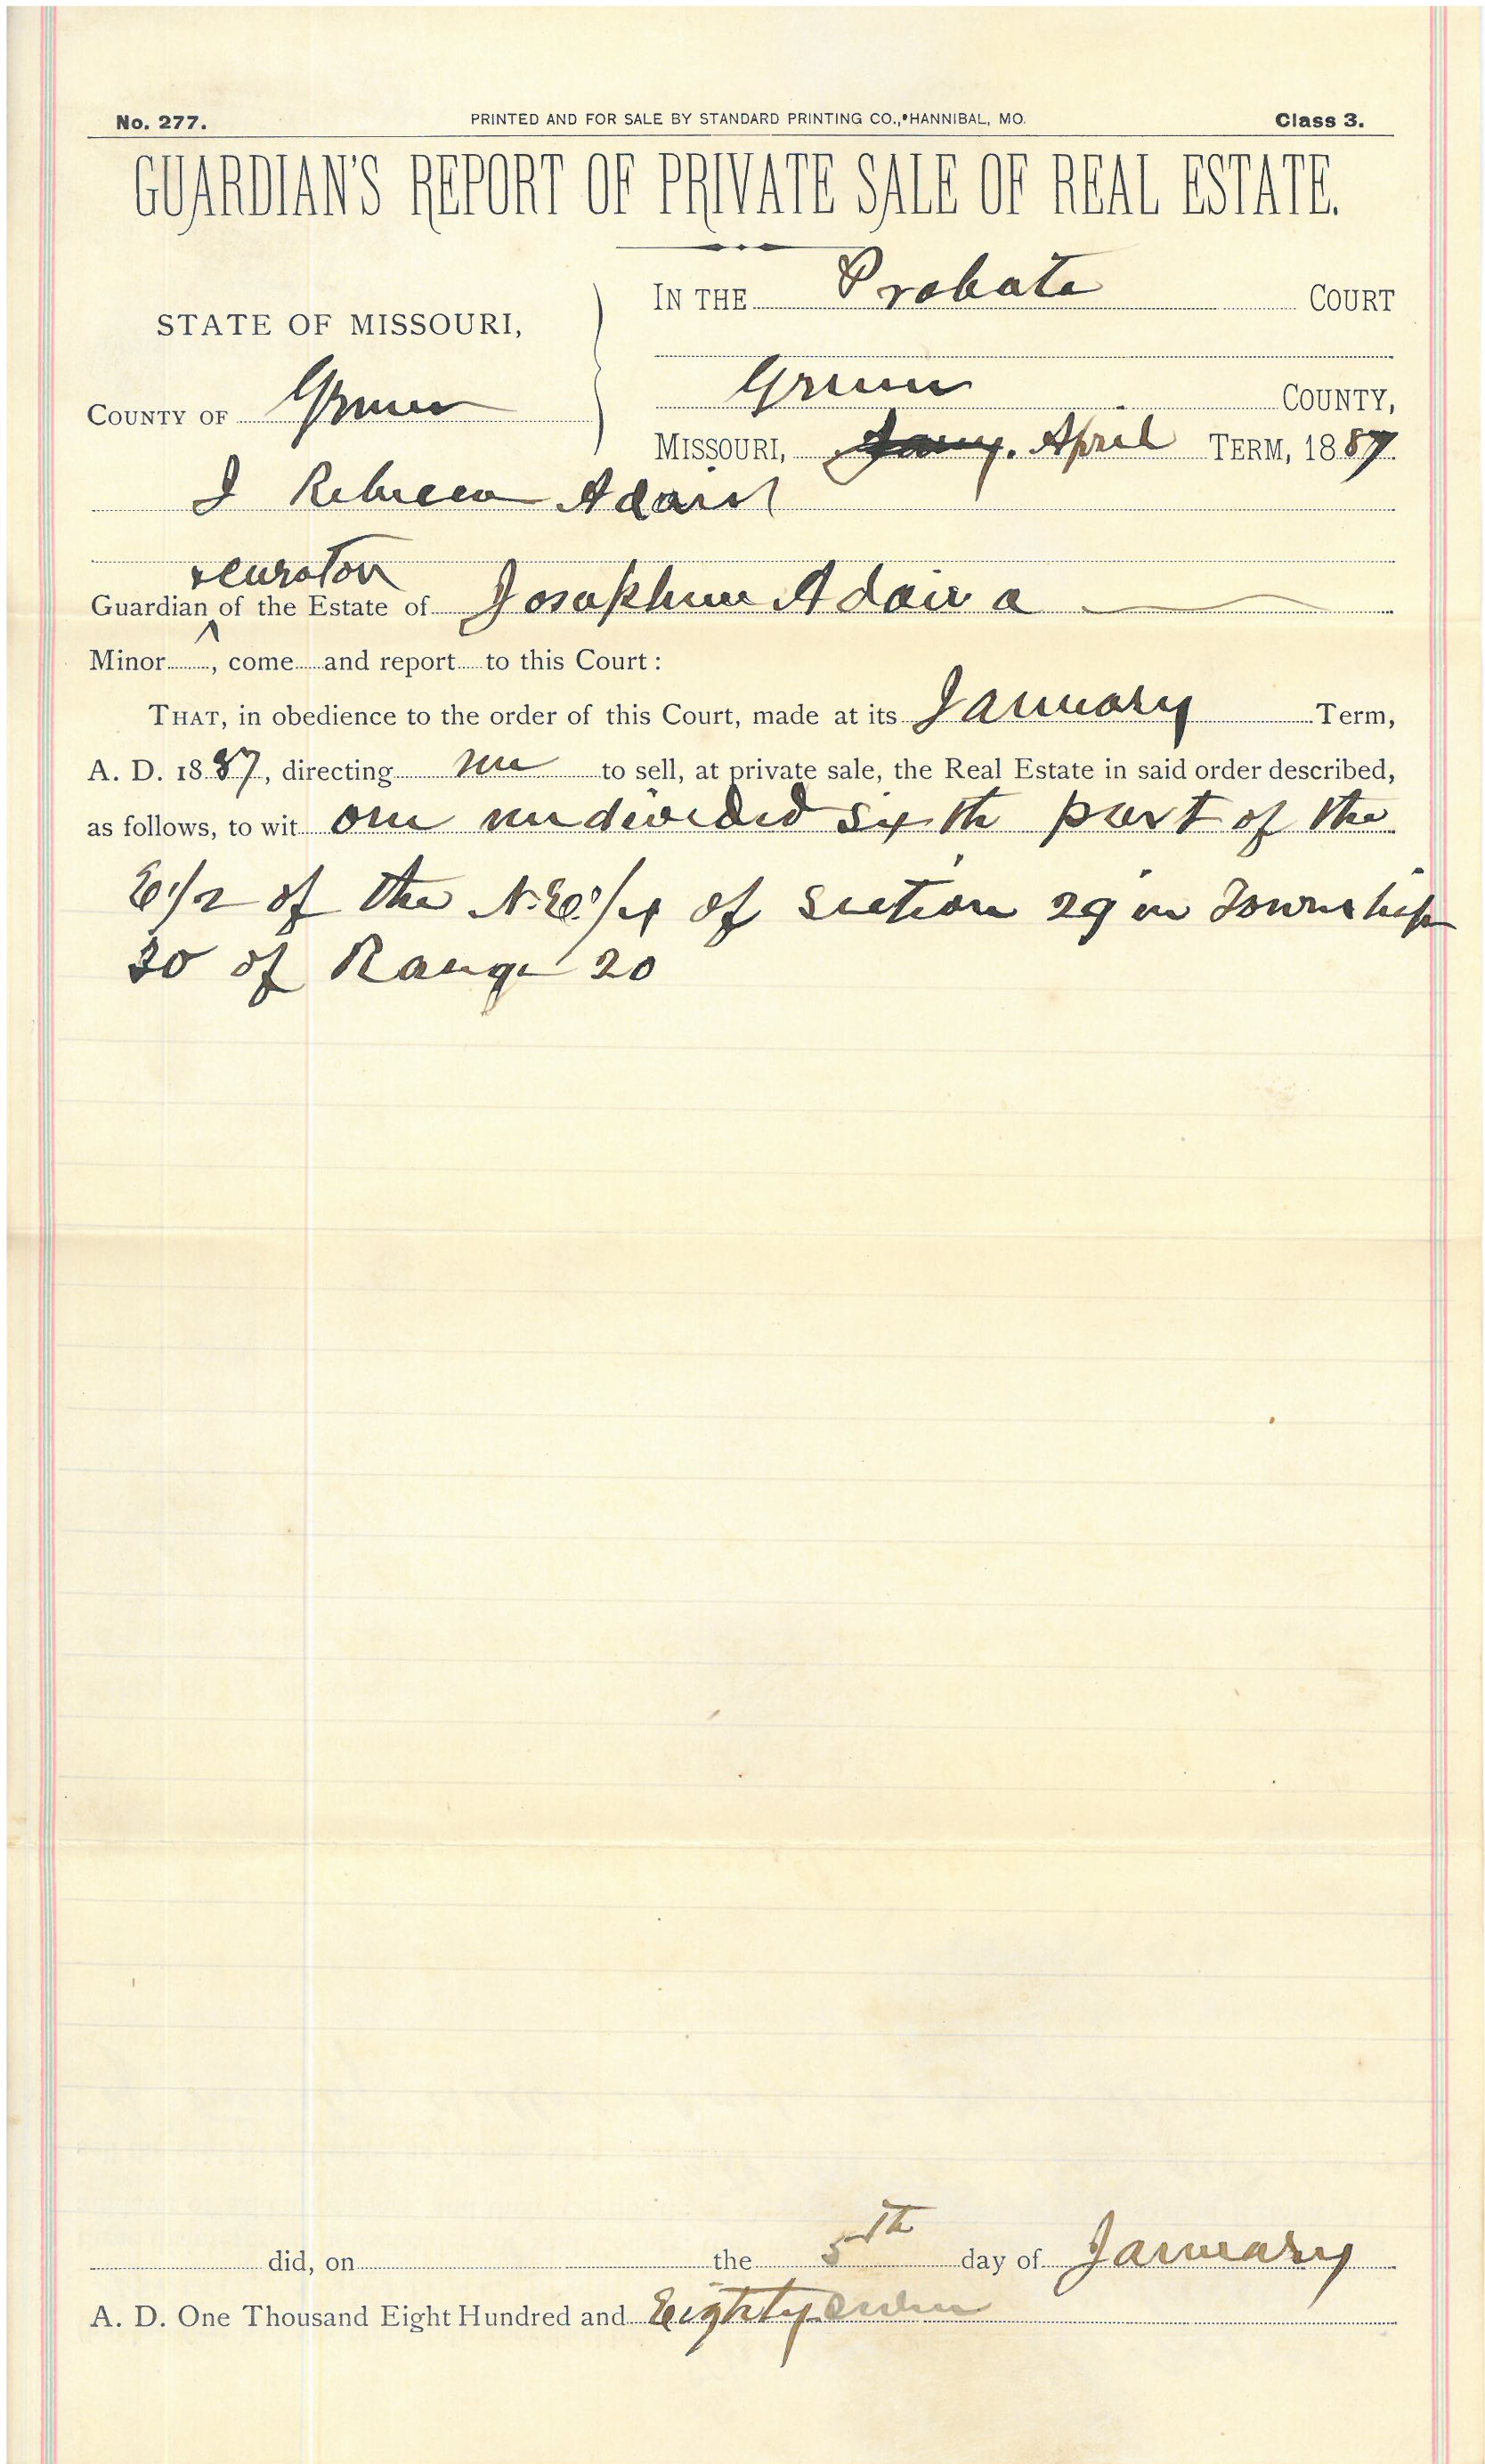 No. 277. PRINTED AND FOR SALE BY STANDARD PRINTING CO., HANNIBAL, MO. Class 3.
GUARDIAN'S REPORT OF PRIVATE SALE OF REAL ESTATE.
STATE OF MISSOURI,
COUNTY OF Green
IN THE Probate COURT
Green COUNTY,
MISSOURI, Jany. April TERM, 1887.
I Rebecca Adair
& curator
Guardian of the Estate of Josephine Adair a
Minor, come and report to this Court:
THAT, in obedience to the order of this Court, made at its January Term,
A. D. 1887, directing me to sell, at private sale, the Real Estate in said order described,
as follows, to wit one undivided sixth part of the
E 1/2 of the N.E. 1/4 of Section 29 in Township
30 of Range 20
did, on the 5th day of January
A. D. One Thousand Eight Hundred and Eighty seven